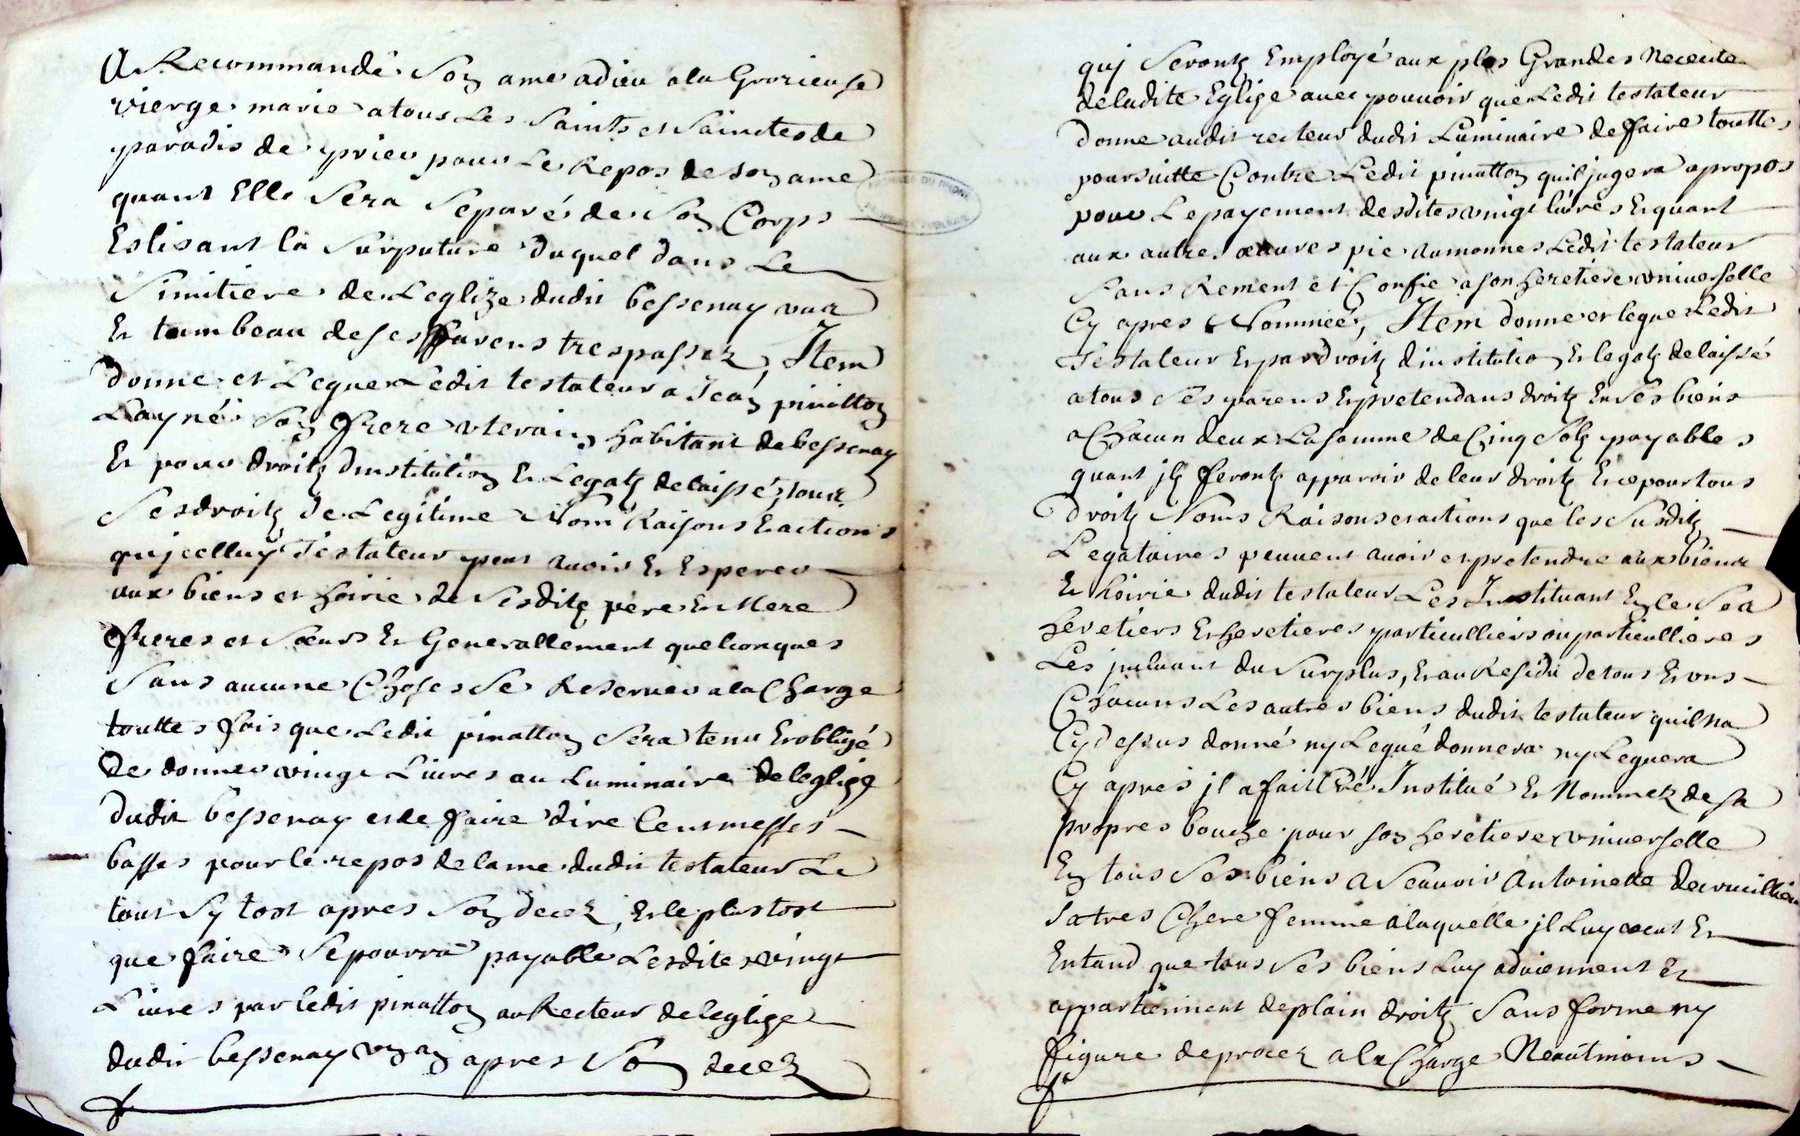 A Recommandé Son ame adieu ala Glorieuse
vierge marie atous Les Saints et Sainctes de
paradis de prier pour Le Repos de son ame
quant Elle Sera Separé de Son Corps
Eslisant la Surputure duquel dans Le
Simitiere de Leglize dudit bessenay vaz
Et tumbeau de ses parens trespassez, Item
donne et Legue Ledit testateur a Jean pinatton
Layné Son frere uterain habitant de bessenay
Et pour droitz dinstitution Et Legatz delaissé tour
Ses droitz de Legitime Nom Raisons Et actions
quicelluy Testateur peut avoir Et Esperer
aux biens et hoirie de Sesditz pere Et Mere
freres et sœurs Et Generallement quelconques
Sans aucune Choses Se Reserver ala Charge
touttes fois que Ledit pinatton Sera tenu Et obligé
de donner vingt Livres au Luminaire de leglize
dudit bessenay et de faire dire Cent messes
basses pour le repos de lame dudit testateur Le
tout Sy tost apres Son decez, Et le plustost
que faire Se pourra payable Lesdites vingt
Livres par ledit pinatton au Recteur de leglize
dudit bessenay un an apres Son decez
quj Seront Employé aux plus Grandes Necceite
deladite Eglize avec pouvoir que Ledit testateur
donne audit recteur dudit Luminaire de faire touttes
poursuitte Contre Ledit pinatton quil jugera apropos
pour Le payement desdites vingt livres Et quant
aux autres œuvres pie aumonnes Ledit testateur
Sans Rement et Confie a son heretiere universelle
Cy apres Nommée, Item donne et legue Ledit
Testateur Et par droitz dinstitution Et legatz delaissé
atous Ses parens Et pretendans droitz En Ses biens
a Chacun deux La somme de Cinq Solz payables
quant jlz feront apparoir de leur droitz Et ce pour tous
droitz Noms Raisons et actions que les Susditz
Legataires peuvent avoir et pretendre aux biens
Et hoirie dudit testateur Les Instituant En ce Sea
heretiers Et heretieres particulliers ou particullieres
Les jncluant du Surplus, Et au Residu de tous Et uns
Chacuns Les autres biens dudit testateur quil na
Cy dessus donné ny Legué donnera ny Leguera
Cy apres jl a fait Cré Institué Et Nommez de sa
propres bouche pour son heretiere universelle
En tous Ses biens A Scavoir Antoinette
Sa tres Chere femme a laquelle jl Luy veut Et
Entand que tous Ses biens Luy adviennent Et
appartiennent de plain droitz Sans forme ny
figure de procez ala Charge Neantmoins